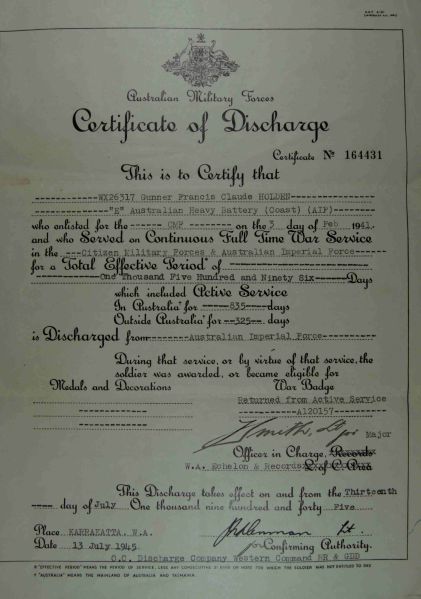 Australian Military Forces
Certificate of Discharge
Certificate No 164431
This is to Certify that
WX26317 Gunner Francis Claude HOLDEN
"E" Australian Heavy Battery (Coast) (AIF)
who enlisted for the CMF on the 3 day of Feb 1941.
and who Served on Continuous Full Time War Service
in the Citizen Military Forces & Australian Imperial Force
for a Total Effective Period* of
One Thousand Five Hundred and Ninety Six Days
which included Active Service
In Australia† for 835 days
Outside Australia† for 325 days
is Discharged from Australian Imperial Force
During that service, or by virtue of that service, the
soldier was awarded, or became eligible for
Medals and Decorations War Badge
Returned from Active Service
A120157
Major
Officer in Charge, Records
W.A. Echelon & Records L of C Area
This Discharge takes effect on and from the Thirteenth
day of July One thousand nine hundred and forty Five.
Place KARRAKATTA, W.A.
Date 13 July 1945 for Confirming Authority.
O.C. Discharge Company Western Command RR & GDD
* "EFFECTIVE PERIOD" MEANS THE PERIOD OF SERVICE, LESS ANY CONSECUTIVE 21 DAYS OR MORE FOR WHICH THE SOLDIER WAS NOT ENTITLED TO PAY
† "AUSTRALIA" MEANS THE MAINLAND OF AUSTRALIA AND TASMANIA.